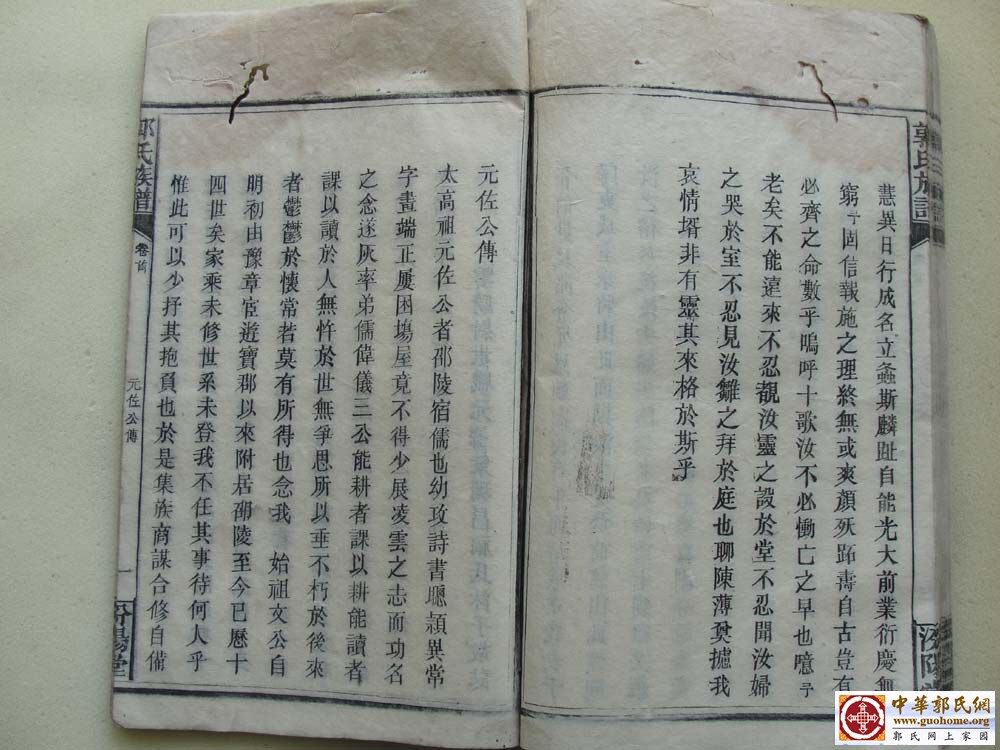 郭氏族譜
慧異日行成名立螽斯麟趾自能光大前業衍慶無
窮予固信報施之理終無或爽顏殀跖壽自古豈有
必齊之命數乎嗚呼十歌汝不必慟亡之早也噫予
老矣不能遠來不忍覩汝靈之設於堂不忍聞汝婦
之哭於室不忍見汝雛之拜於庭也聊陳薄奠攄我
哀情壻非有靈其來格於斯乎
元佐公傳
太高祖元佐公者邵陵宿儒也幼攻詩書聰穎異常
字畫端正屢困塲屋竟不得少展凌雲之志而功名
之念遂灰率弟儒偉儀三公能耕者課以耕能讀者
課以讀於人無忤於世無爭思所以垂不朽於後來
者鬱鬱於懷常若莫有所得也念我 始祖文公自
明初由豫章宦遊寶郡以來附居邵陵至今已歷十
四世矣家乘未修世系未登我不任其事待何人乎
惟此可以少抒其抱負也於是集族商謀合修自備
郭氏族譜
卷首
元佐公傳
一
汾陽堂
中華郭氏網
www.guohome.org
郭氏网上家园